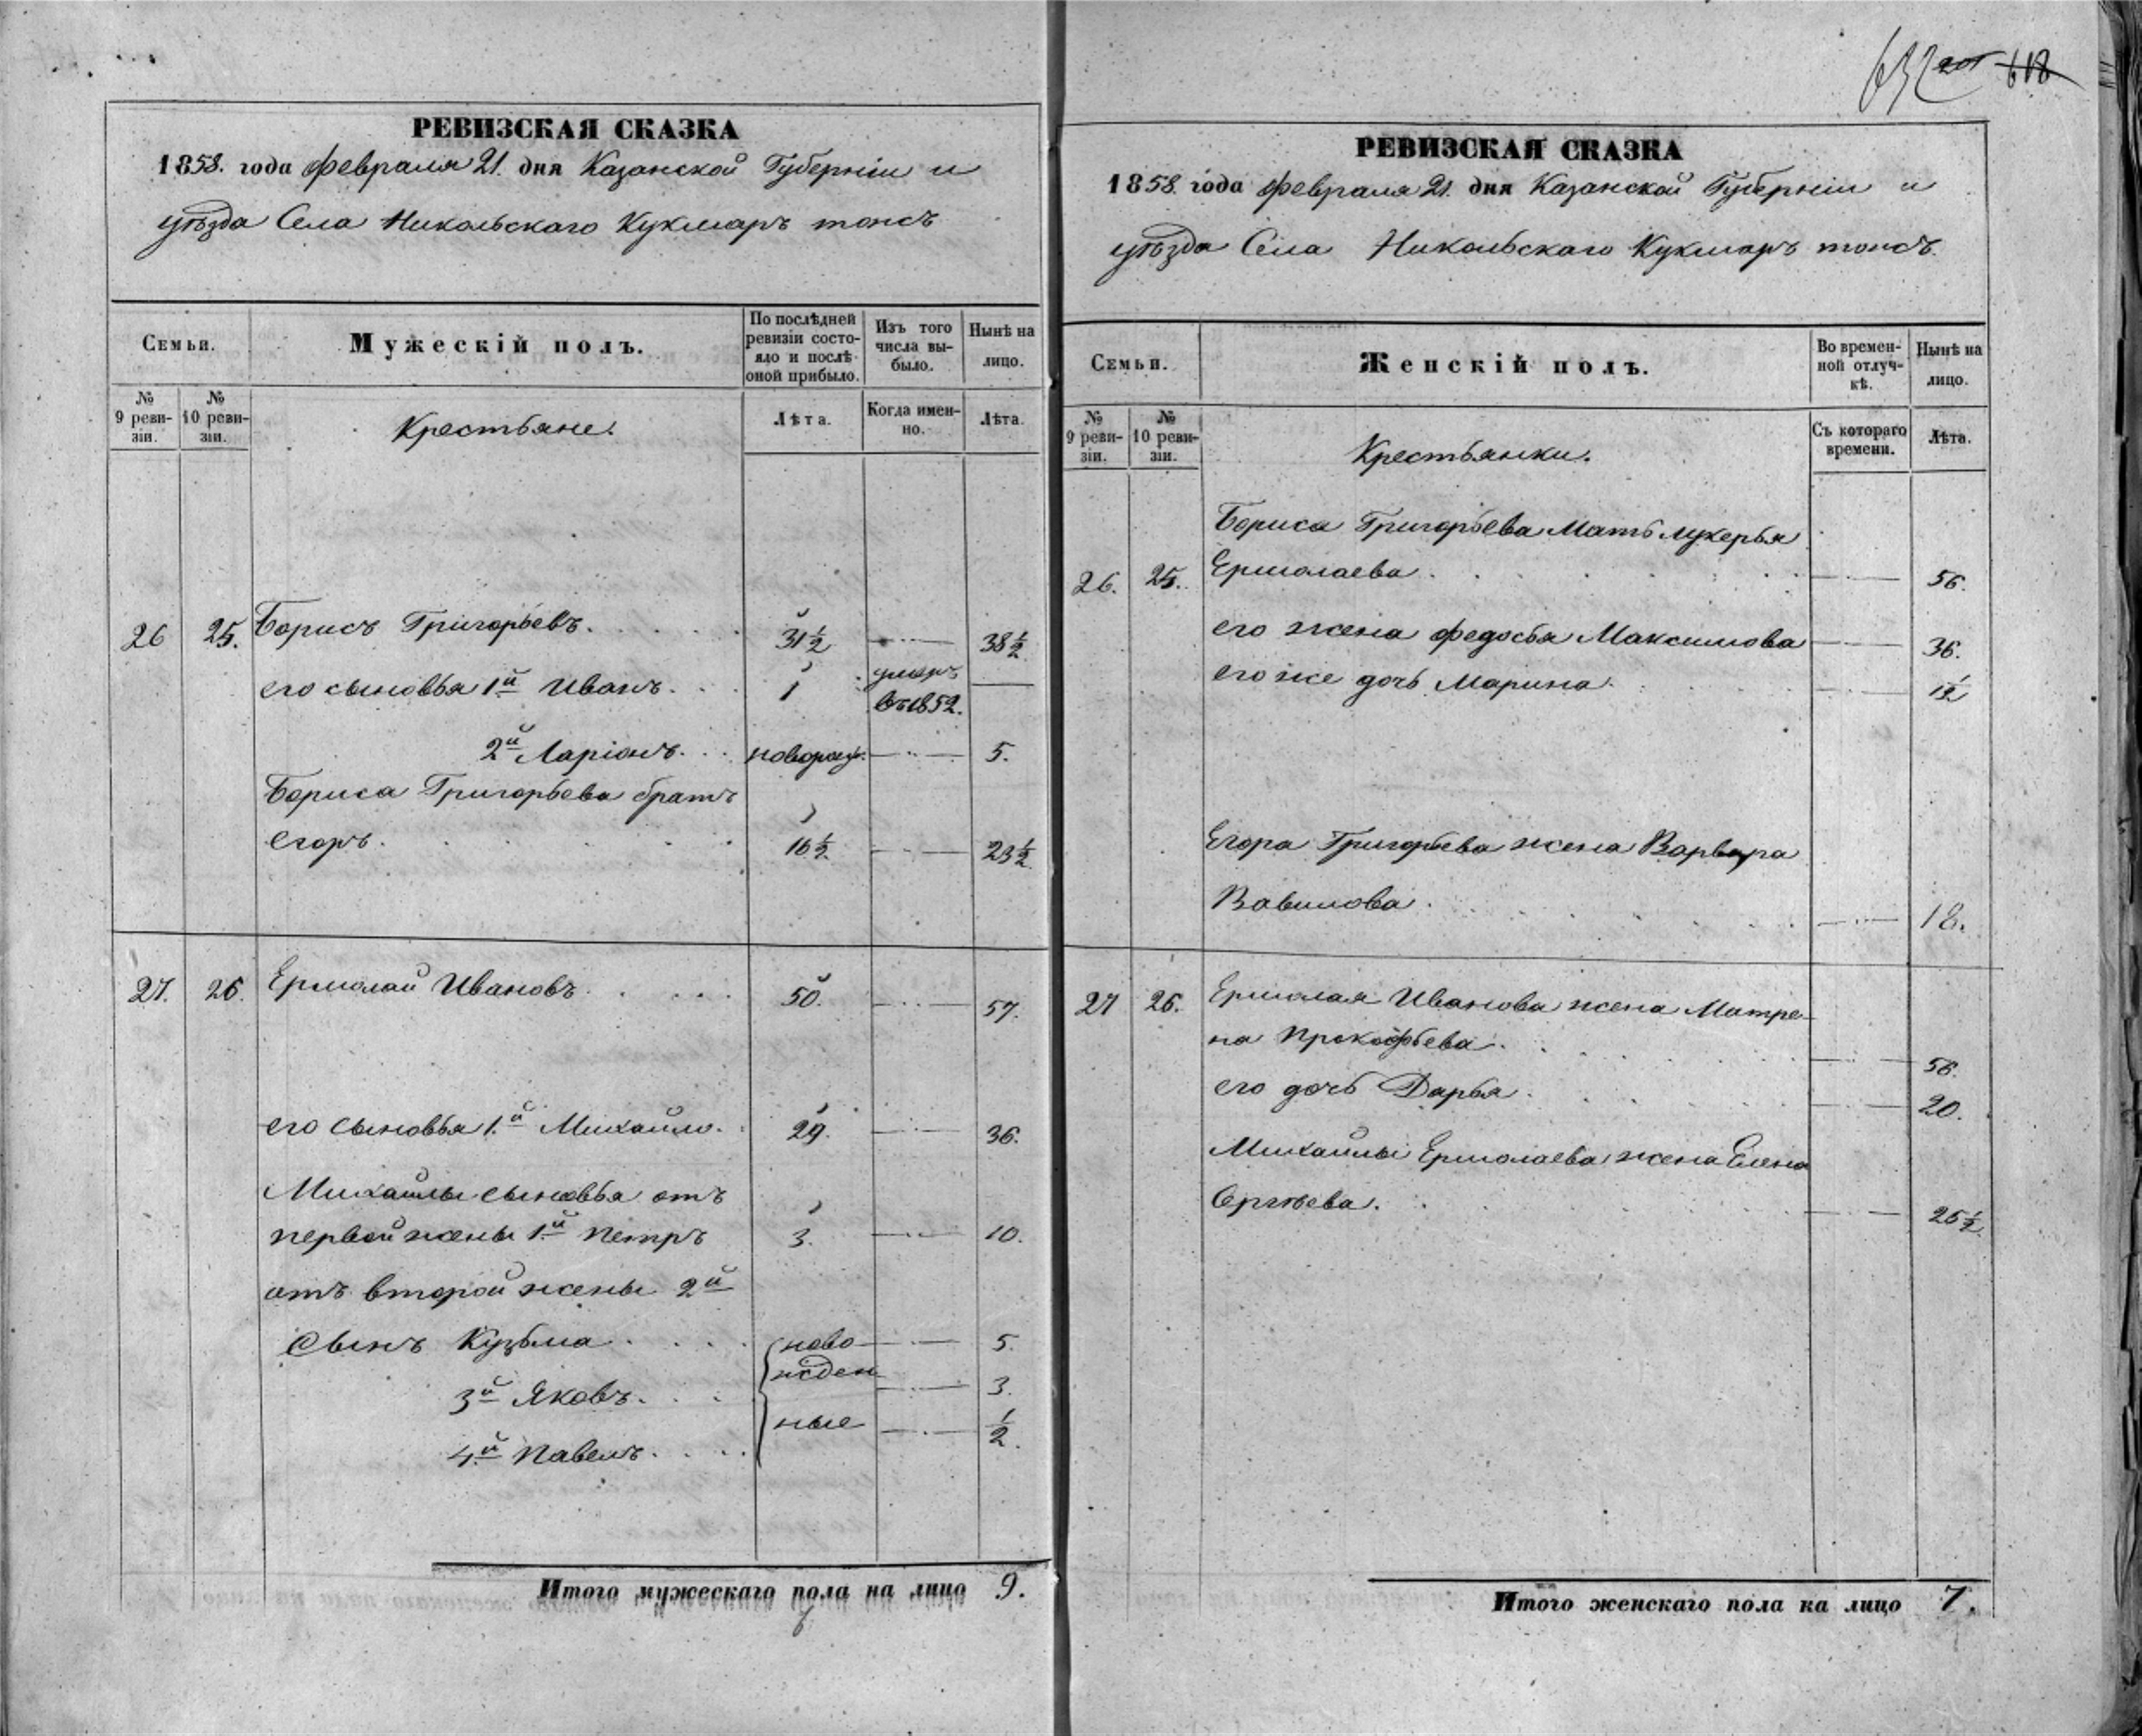 РЕВИЗСКАЯ СКАЗКА
1858. года Февраля 21. дня Казанской Губерніи и
уѣзда Села Никольскаго Кукмаръ тожъ
Семьи.
Мужескій полъ.
По послѣдней ревизіи состояло и послѣ оной прибыло.
Изъ того числа выбыло.
Нынѣ на лицо.
№ 9 ревизіи.
№ 10 ревизіи.
Крестьяне.
Лѣта.
Когда именно.
Лѣта.
26 25. Борисъ Григорьевъ. 31 1/2 38 1/2
его сыновья 1й Иванъ. 1 умеръ въ 1852.
2й Ларіонъ. новорож. 5.
Бориса Григорьева братъ
Егоръ. 16 1/2 23 1/2
27. 26. Ермолай Ивановъ. 50. 57.
его сыновья 1.й Михайло. 29. 36.
Михайлы сыновья отъ
первой жены 1й Петръ 3. 10.
отъ второй жены 2й
сынъ Кузьма ново 5.
3й Яковъ. жден 3.
4й Павелъ. ные 1/2.
Итого мужескаго пола на лицо 9.
618
РЕВИЗСКАЯ СКАЗКА
1858. года Февраля 21. дня Казанской Губерніи и
уѣзда Села Никольскаго Кукмаръ тожъ.
Семьи.
Женскій полъ.
Во временной отлучкѣ.
Нынѣ на лицо.
№ 9 ревизіи.
№ 10 ревизіи.
Крестьянки.
Съ котораго времени.
Лѣта.
Бориса Григорьева Мать Лукерья
26. 25. Ермолаева. 56.
его жена Федосья Максимова 36.
его же дочь Марина.
Егора Григорьева жена Варвара
Вавилова. 18.
27 26. Ермолая Иванова жена Матре-
на Прокофьева. 56.
его дочь Дарья. 20.
Михайлы Ермолаева жена Елена
Сергѣева. 26 1/2
Итого женскаго пола на лицо 7.